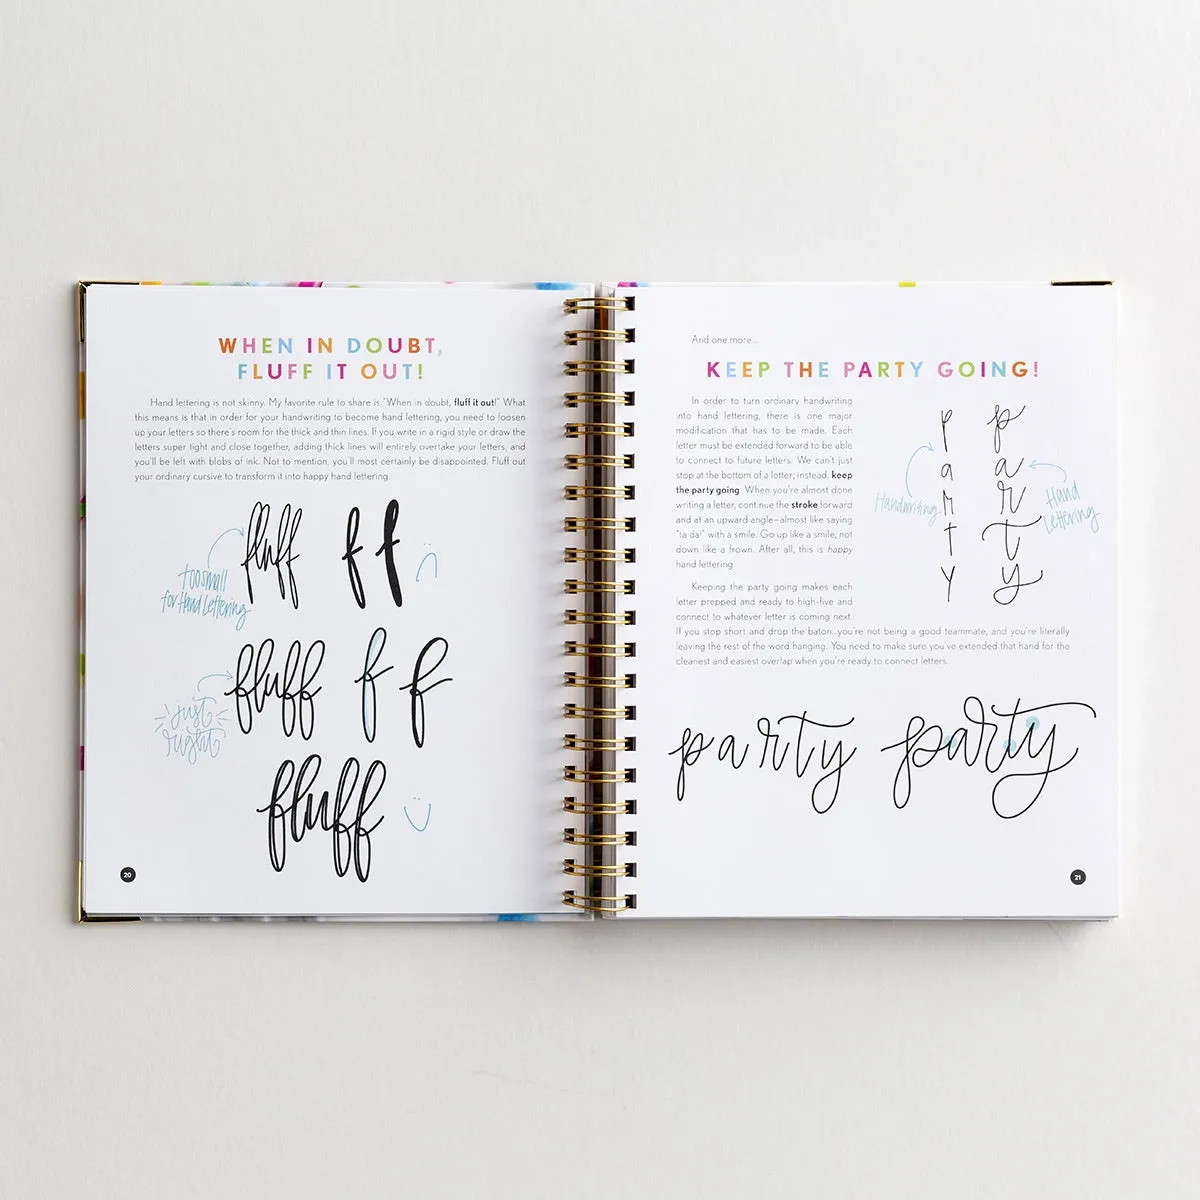 WHEN IN DOUBT,
FLUFF IT OUT!
Hand lettering is not skinny. My favorite rule to share is "When in doubt, fluff it out!" What
this means is that in order for your handwriting to become hand lettering, you need to loosen
up your letters so there's room for the thick and thin lines. If you write in a rigid style or draw the
letters super tight and close together, adding thick lines will entirely overtake your letters, and
you'll be left with blobs of ink. Not to mention, you'll most certainly be disappointed. Fluff out
your ordinary cursive to transform it into happy hand lettering.
fluff f f
too small
for Hand Lettering
fluff f f
just
right
fluff
20
And one more...
KEEP THE PARTY GOING!
In order to turn ordinary handwriting
into hand lettering, there is one major
modification that has to be made. Each
letter must be extended forward to be able
to connect to future letters. We can't just
stop at the bottom of a letter; instead, keep
the party going. When you're almost done
writing a letter, continue the stroke forward
and at an upward angle–almost like saying
"ta da!" with a smile. Go up like a smile, not
down like a frown. After all, this is happy
hand lettering.
Keeping the party going makes each
letter prepped and ready to high-five and
connect to whatever letter is coming next.
If you stop short and drop the baton...you're not being a good teammate, and you're literally
leaving the rest of the word hanging. You need to make sure you've extended that hand for the
cleanest and easiest overlap when you're ready to connect letters.
p p
a a
r r
t t
y y
Handwriting
Hand
Lettering
party party
21